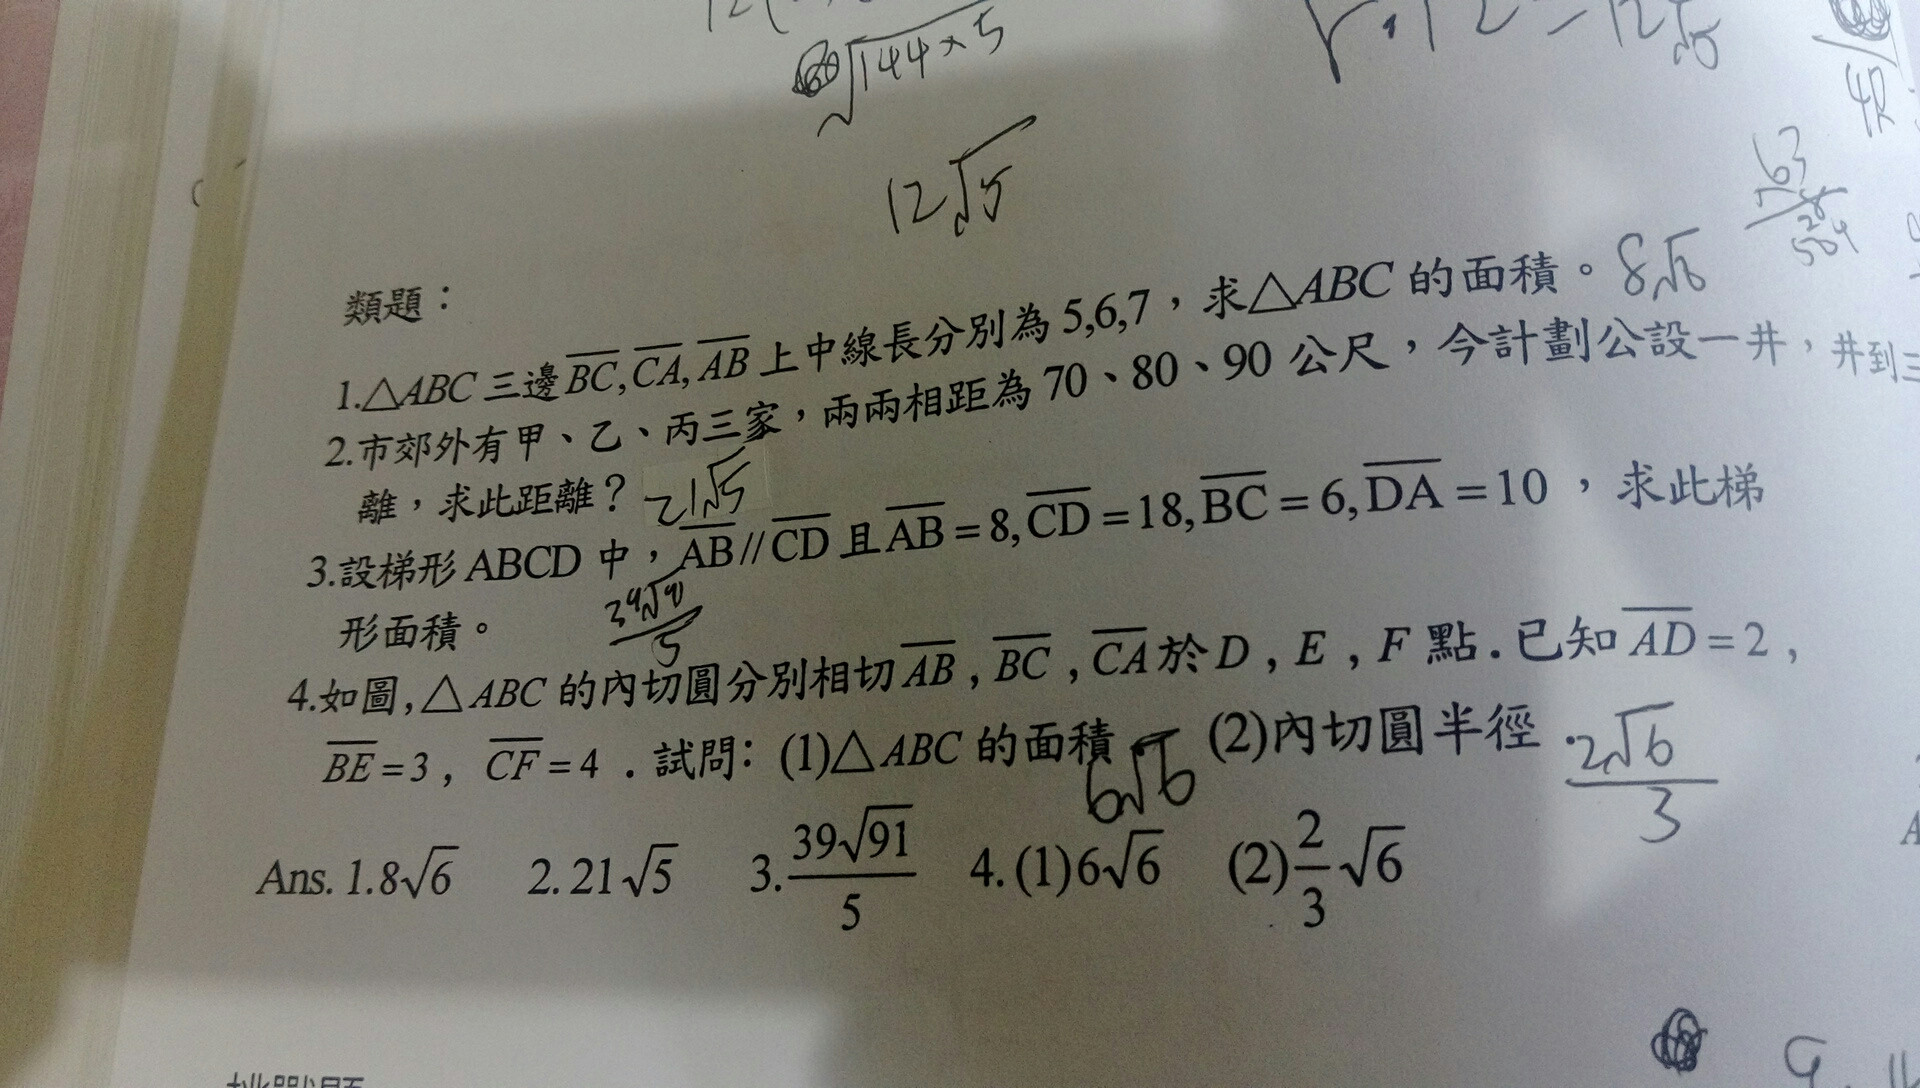 √144×5
12√5
63
504
類題：
1.△ABC 三邊 BC, CA, AB 上中線長分別為 5,6,7，求△ABC 的面積。 8√6
2.市郊外有甲、乙、丙三家，兩兩相距為 70、80、90 公尺，今計劃公設一井，井到三
離，求此距離？ 21√5
3.設梯形 ABCD 中，AB//CD 且 AB=8, CD=18, BC=6, DA=10，求此梯
形面積。
4.如圖,△ABC 的內切圓分別相切 AB , BC , CA 於 D , E , F 點.已知 AD=2 ,
BE=3 , CF=4 .試問: (1)△ABC 的面積 6√6 (2)內切圓半徑. 2√6/3
Ans. 1.8√6 2. 21√5 3. 39√91/5 4. (1)6√6 (2) 2/3 √6